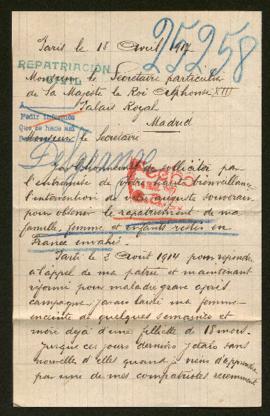 Paris le 18 Avril 1917
25258
REPATRIACIÓN
CIVIL
Monsieur le Secrétaire particulier
de Sa Majesté le Roi Alphonse XIII
A
Palais Royal
Pedir informes
Que se haga
Madrid
Monsieur le Secrétaire
Delgrange
solliciter par
l'entremise de votre haute bienveillance
l'intervention de auguste souverain
pour obtenir le repatriement de ma
famille, femme et enfants restés en
France envahie.
Parti le 2 Août 1914 pour répondre
à l'appel de ma patrie et maintenant
réformé pour maladie grave après
campagne, j'avais laissé ma femme
enceinte de quelques semaines et
mère déjà d'une fillette de 15 mois.
Jusque ces jours derniers j'étais sans
nouvelle d'elles quand je viens d'apprendre
par une de mes compatriotes récemment